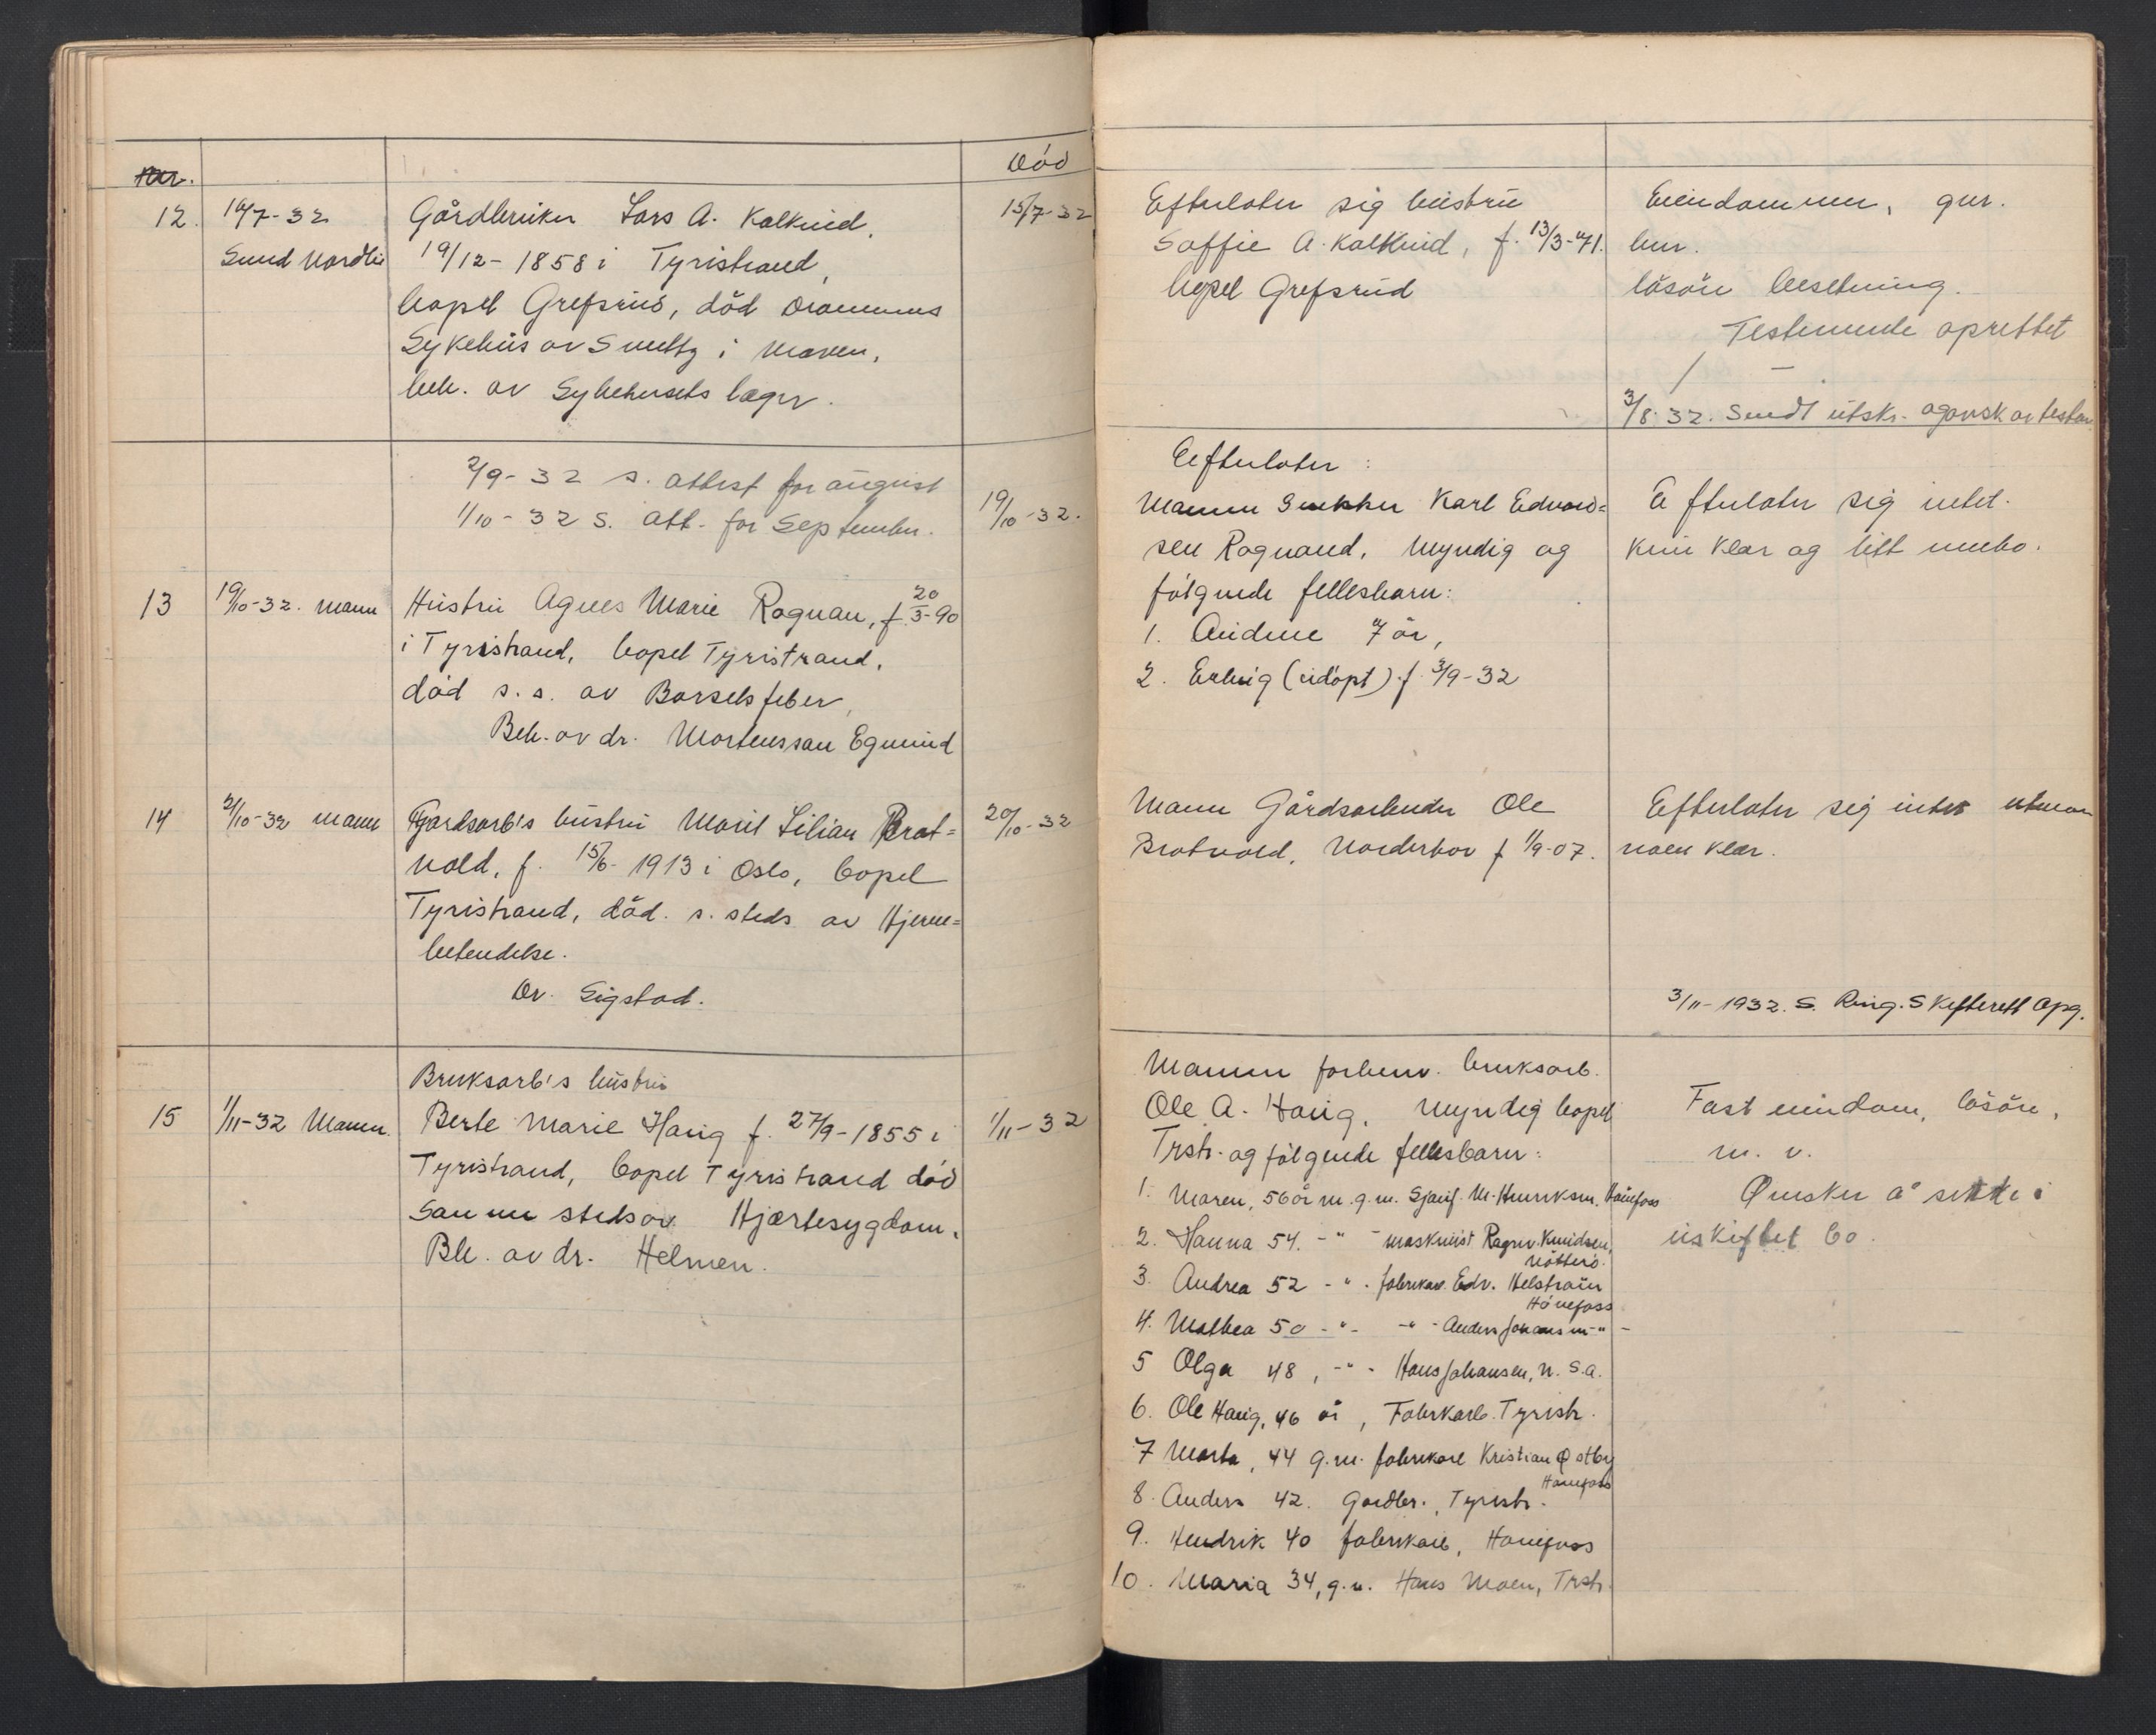 Nr.
Död
12. 16/7-32
Gårdbruker Lars A. Kalkrud,
15/7-32
Svend Nordlie
19/12-1858 i Tyristrand,
bopel Grefsrud, död Drammens
Sykehus av Smelty i Maven,
beh. av Sykehusets læger.
2/9-32 s. attest for august
1/10-32 S. att. for September.
19/10-32.
13
19/10-32. Mann
Hustru Agnes Marie Rognan, f. 20/3-90
i Tyristrand, bopel Tyristrand,
död s. s. av Barselsfeber,
Beh. av dr. Mortensson Egnund
14
21/10-32 mann
Gardsarb's hustru Marit Lilian Brat=
20/10-32
vold, f. 15/6-1913 i Oslo, bopel
Tyristrand, död. s. steds av Hjerne=
betendelse.
Dr. Sigstad.
Bruksarb's hustru
15
1/11-32 Mannen.
Berte Marie Haug f. 27/9-1855 i
1/11-32
Tyristrand, bopel Tyristrand död
Samme sted av Hjertesygdom.
Beh. av dr. Helmen.
Efterlater sig hustru
Soffie A. Kalkrud, f. 13/3-71.
bopel Grefsrud
Eiendommen, gnr.
bnr.
lösöre besetning.
Testemente oprettet
/ —
3/8-32. Sendt utskr. avskr av testam.
Efterlater:
Mannen Snekker Karl Edvard=
sen Rognand, Myndig og
fölgende fellesbarn:
1. Audine 7 år,
2. (udöpt) f. 3/9-32
Efterlater sig intet.
kun klær og litt innbo.
Mann Gårdsarbeider Ole
Bratvold, Norderhov f 1/9-07.
Efterlater sig intet utenom
noen klær.
3/11-1932. S. Ring. Skifterett Opg.
Mannen forhenv. bruksarb.
Ole A. Haug, Myndig bopel
Trstr. og fölgende fellesbarn:
1. Maren, 56 år m. g. m. Sjauf. M. Henriksen. Hönefoss
2. Hanna 54. -"- maskinist Ragnv. Knudsen,
Nötterö.
3. Andrea 52 -"- fabrikarb. Edv. Helstraum
Hönefoss
4. Mathea 50 -"- -"- Anders Johansen -"-
5 Olga 48, -"- Hans Johansen, U. S. A.
6. Ole Haug, 46 år, Fabrkarb. Tyristr.
7 Marta, 44 g.m. fabrikarb Kristian Østby
Hönefoss
8. Anders 42. Gardbr., Tyristr.
9. Hendrik 40 fabrikarb, Hönefoss
10. Maria 34, g.m. Hans Moen, Trstr.
Fast eiendom, lösöre,
m. v.
Ønsker å sitte i
uskiftet bo.